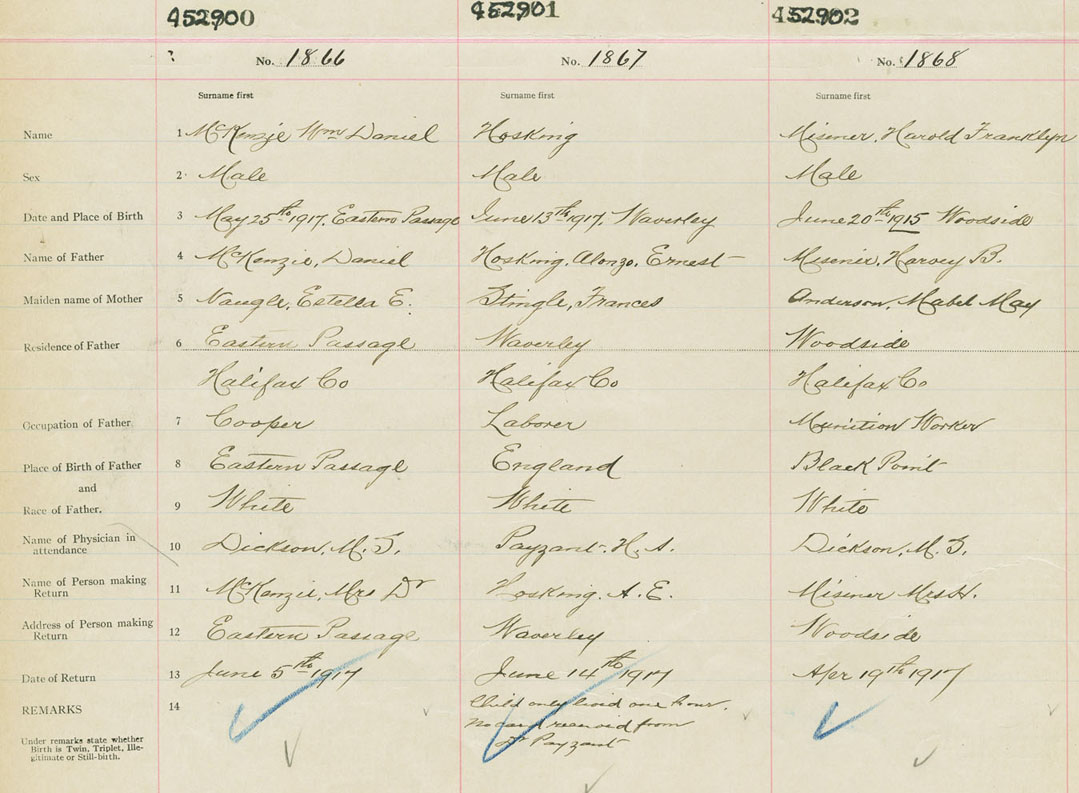 452900 452901 452902
No. 1866 No. 1867 No. 1868
Surname first Surname first Surname first
Name 1 McKenzie Wm Daniel Hosking Misener, Harold Franklyn
Sex 2 Male Male Male
Date and Place of Birth 3 May 25th 1917, Eastern Passage June 13th 1917, Waverley June 20th 1915 Woodside
Name of Father 4 McKenzie, Daniel Hosking, Alonzo, Ernest Misener, Harvey B.
Maiden name of Mother 5 Naugle, Estella E. Stingle, Frances Anderson, Mabel May
Residence of Father 6 Eastern Passage Waverley Woodside
Halifax Co Halifax Co Halifax Co
Occupation of Father 7 Cooper Laborer Munition Worker
Place of Birth of Father 8 Eastern Passage England Black Point
and
Race of Father. 9 White White White
Name of Physician in
attendance 10 Dickson, M. S. Payzant. H. A. Dickson, M. S.
Name of Person making
Return 11 McKenzie, Mrs Dr Hosking. A. E. Misener Mrs H.
Address of Person making
Return 12 Eastern Passage Waverley Woodside
Date of Return 13 June 5th 1917 June 14th 1917 Apr 19th 1917
REMARKS 14 Child only lived one hour.
No card received from
Dr Payzant
Under remarks state whether
Birth is Twin, Triplet, Ille-
gitimate or Still-birth.